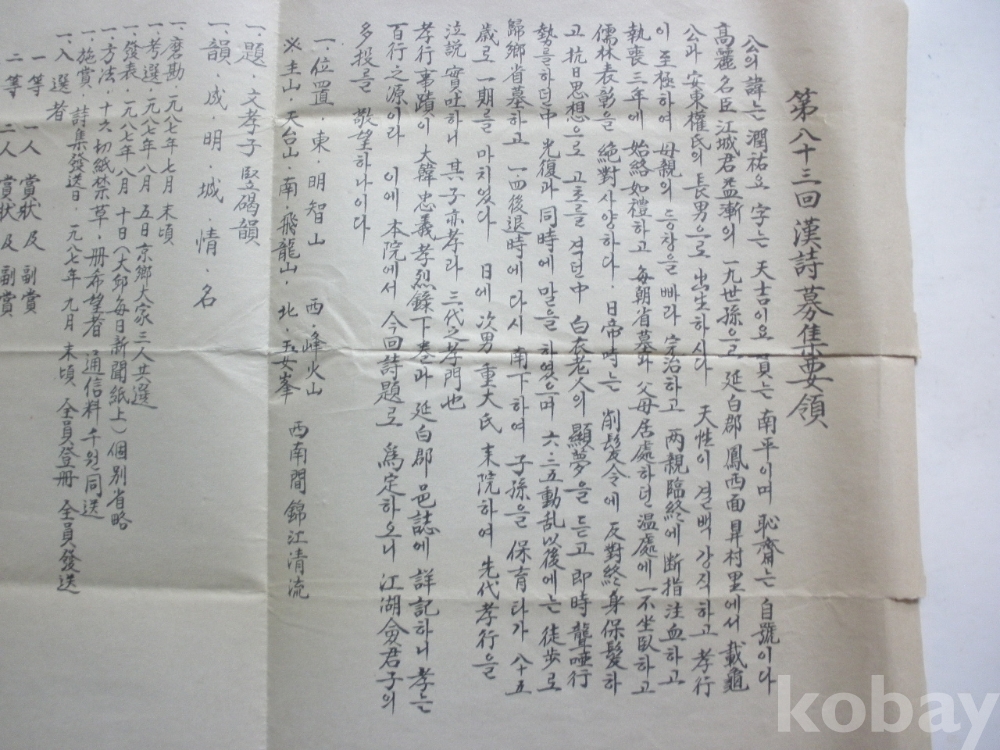 第八十三回 漢詩募集要領
公의 諱는 潤祐요 字는 天吉이요 貫은 南平이며 恥齋는 自號이다
高麗名臣 江城君 益漸의 一九世孫으로 延白郡 鳳西面 昇村里에서 載龜
公과 安東權氏의 長男으로 出生하시다 天性이 결백 강직하고 孝行
이 至極하여 母親의 등창을 빠라 完治하고 两親臨終에 断指注血하고
執喪三年에 始終如禮하고 每朝省墓와 父母居處하던 温處에 一不坐臥하고
儒林表彰을 絶對사양하다. 日帝時는 削髮令에 反對終身保髮하
고 抗日思想으로 고초를 격던中 白衣老人의 顯夢을 듣고 即時 聾唖行
勢를 하던中 光復과 同時에 말을 하였으며 六.二五動乱以後에는 徒步로
歸鄉省墓하고 一.四後退時에 다시 南下하여 子孫을 保育타가 八十五
歲로 一期를 마치었다 日에 次男 重大氏 来院하여 先代孝行을
泣説實吐하니 其子亦孝라 三代之孝門也
孝行事蹟이 大韓忠義孝烈錄下卷과 延白郡邑誌에 詳記하니 孝는
百行之源이라 이에 本院에서 今回詩題로 爲定하오니 江湖僉君子의
多投를 敬望하나이다
一. 位置. 東. 明智山 西. 峰火山 西南間 錦江清流
※ 主山. 天台山. 南. 飛龍山. 北. 玉女峯
一. 題. 文孝子 竪碣韻
一. 韻. 成. 明. 城. 情. 名
一. 磨勘. 一九八七年 七月 末頃
一. 考選. 一九八七年 八月 五日 京鄉大家 三人共選
一. 發表. 一九八七年 八月 十日 (大邱每日新聞紙上) 個别省略
一. 方法. 十六切紙禁草. 册希望者 通信料 千원同送
一. 施賞. 詩集發送日. 一九八七年 九月 末頃 全員登册 全員發送
一. 入選者
一等 一人 賞狀 及 副賞
二等 二人 賞狀 及 副賞
kobay